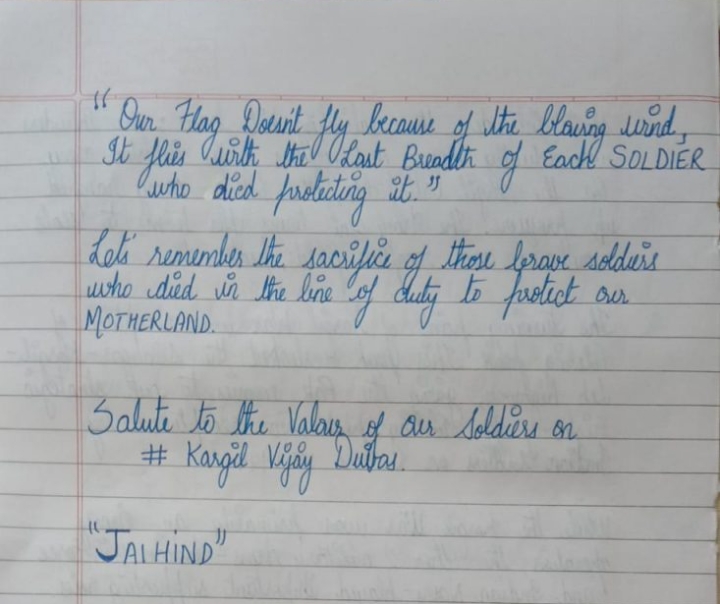 "Our Flag Doesn't fly because of the blowing wind,
It flies with the Last Breadth of Each SOLDIER
who died protecting it."
Lets' remember the sacrifice of those brave soldiers
who died in the line of duty to protect our
MOTHERLAND.
Salute to the Valour of our Soldiers on
# Kargil Vijay Diwas.
"JAI HIND"